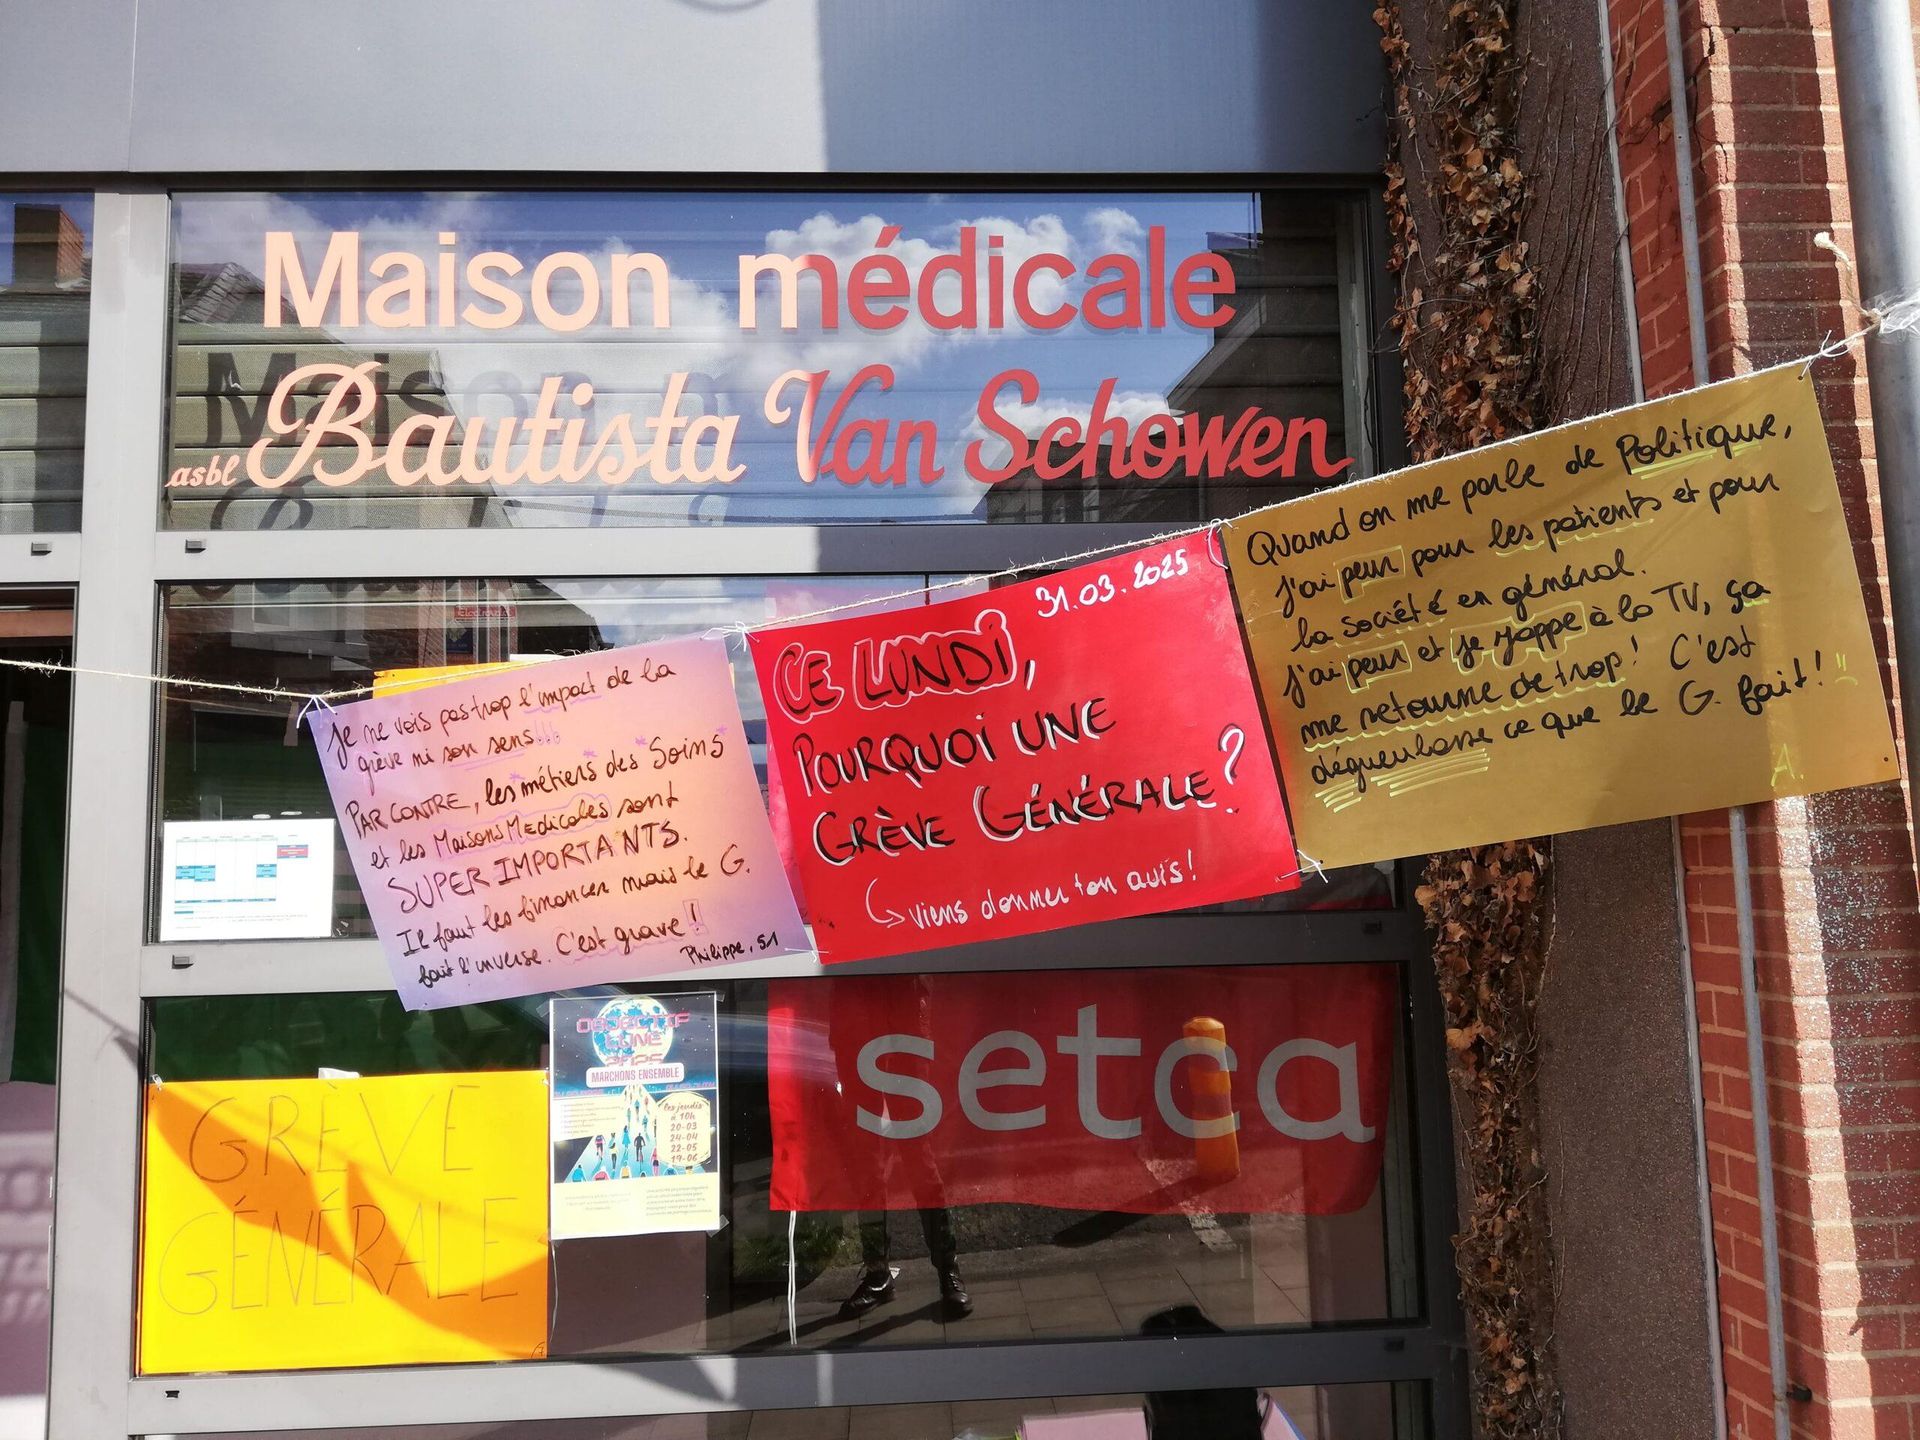 Maison médicale
asbl Bautista Van Schowen
Je ne vois pas trop l'impact de la
grève ni son sens!!!
PAR CONTRE, les métiers des Soins
et les Maisons Médicales sont
SUPER IMPORTANTS.
Il faut les financer mais le G.
fait l'inverse. C'est grave!
Philippe, 51
31.03.2025
CE LUNDI,
POURQUOI UNE
GRÈVE GÉNÉRALE?
viens donner ton avis!
Quand on me parle de Politique,
J'ai peur pour les patients et pour
la société en général.
J'ai peur et je zappe à la TV, ça
me retourne de trop! C'est
dégueulasse ce que le G. fait!
A.
GRÈVE
GÉNÉRALE
OBJECTIF
LUNE
2025
MARCHONS ENSEMBLE
les jeudis
à 10h
20-03
24-04
22-05
19-06
setca